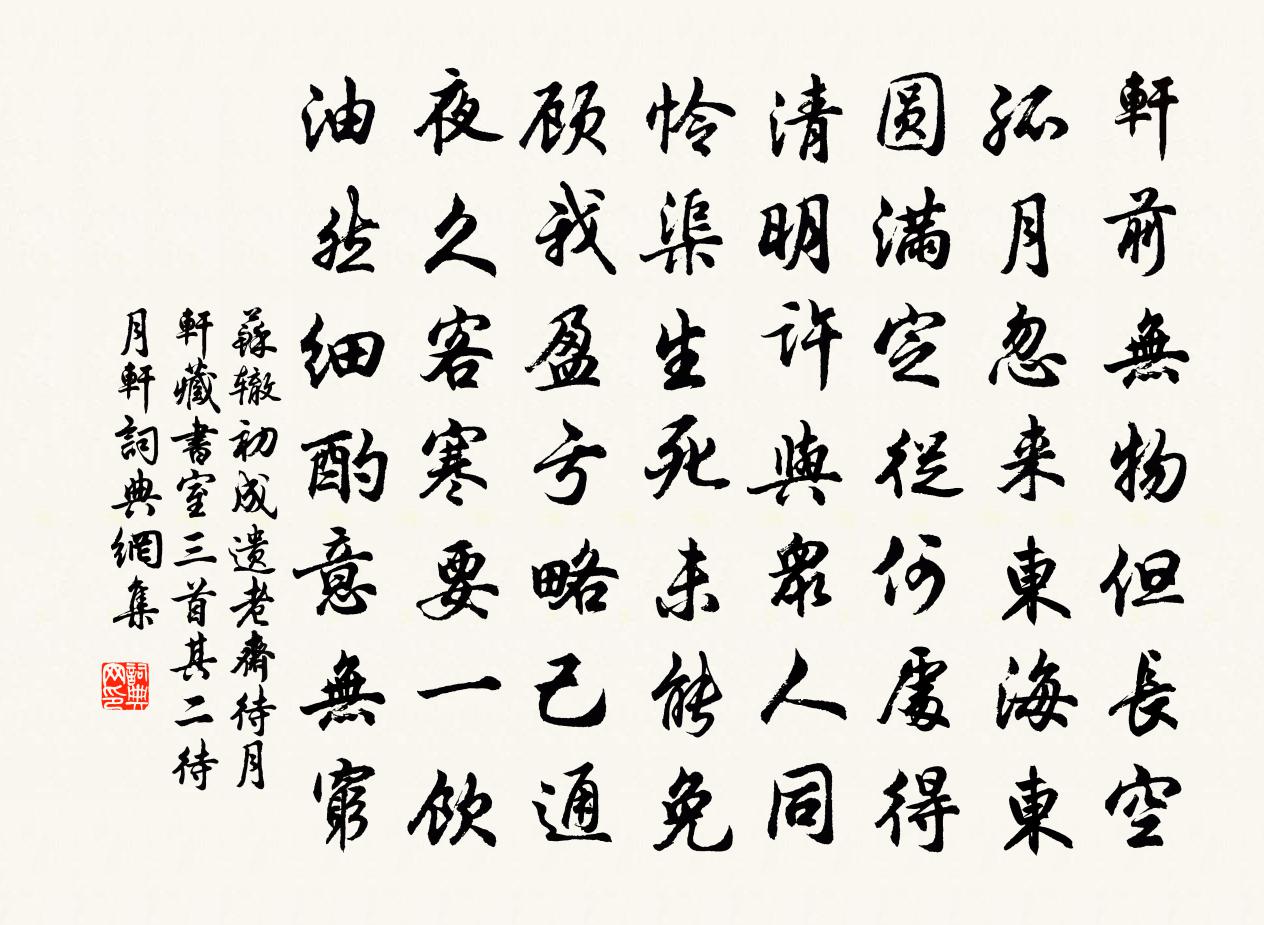 軒前無物但長空
孤月忽来東海東
圆滿定從何處得
清明許與眾人同
怜渠生死未能免
顾我盈亏略已通
夜久客寒要一飲
油然细酌意無窮
蘇辙初成遗老齋待月
軒藏書室三首其二待
月軒詞典網集
詞典网印